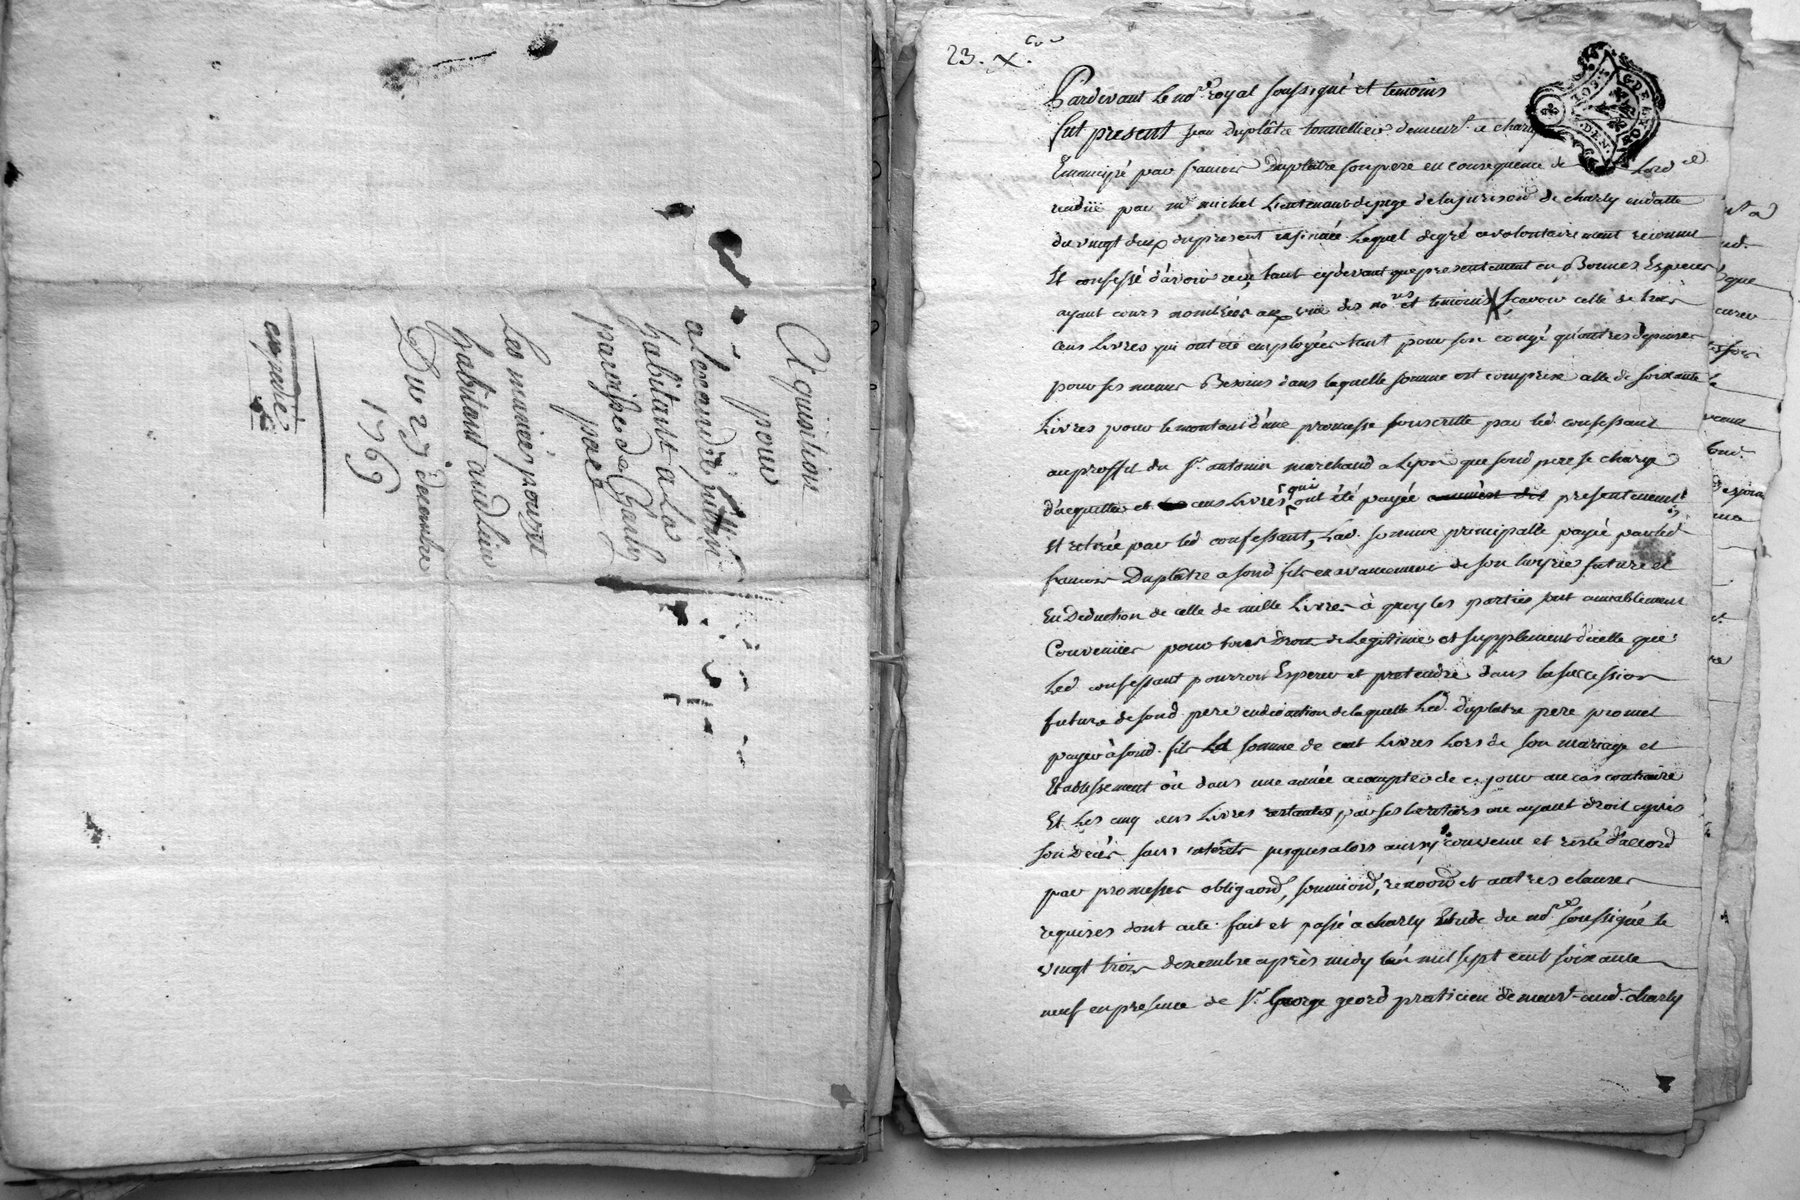 Aquisition
pour
alexandre jullien
habitant a la
paroisse de
par
Les mariés
habitans audit lieu
Du 27 decembre
1769
expedié
23. Xbre
G DE LYON
DEN.
Pardevant le nore royal soussigné et temoins
fut present jean Duplâtre tonnellier demeurt a charly
Emancipé par francois Duplatre son pere en consequence de Lordce
rendüe par mr michel Lieutenant de juge de la jurison de charly en datte
du vingt deux du present insinüée Lequel de gré a volontairement reconnu
Et confessé d'avoir reçu tant cy devant que presentement en Bonnes Especes
ayant cours nombrées aux vüe des nores et temoins X scavoir celle de trois
cens Livres qui ont été employées tant pour son congé qu'autres depenses
pour ses menus Besoins dans laquelle somme est comprise celle de soixante
Livres pour le montant d'une promesse souscritte par led. confessant
au proffit du sr. antonin marchand a Lyon que sond pere se charge
d'acquitter et cens Livres qui ont été payée presentement
et retirée par led confessant, Lad. somme principalle payée par led
francois Duplâtre a sond fils en avancement de son hoyrie future et
En Deduction de celle de mille Livres à quoy les parties sont amiablement
Convenües pour tous Droits de Legitime et supplement d'icelle que
Led. confessant pourroit Esperer et pretendre dans la succession
future de sond. pere en deduction de laquelle Led. Duplatre pere promet
payer à sond. fils La somme de cent Livres Lors de son mariage et
Etablissement ou dans une année a compter de ce jour au cas contraire
Et Les cinq cens Livres restantes par ses heritiers ou ayant droit après
son Decès sans interêts jusques alors ainsy convenu et resté d'accord
par promesses obligaons, soumions, renoons et autres clauses
requises dont acte fait et passé a charly Etude du nore soussigné le
vingt trois decembre après midy l'an mil sept cent soixante
neuf en presence de sr. George geord praticien demeurt aud. charly